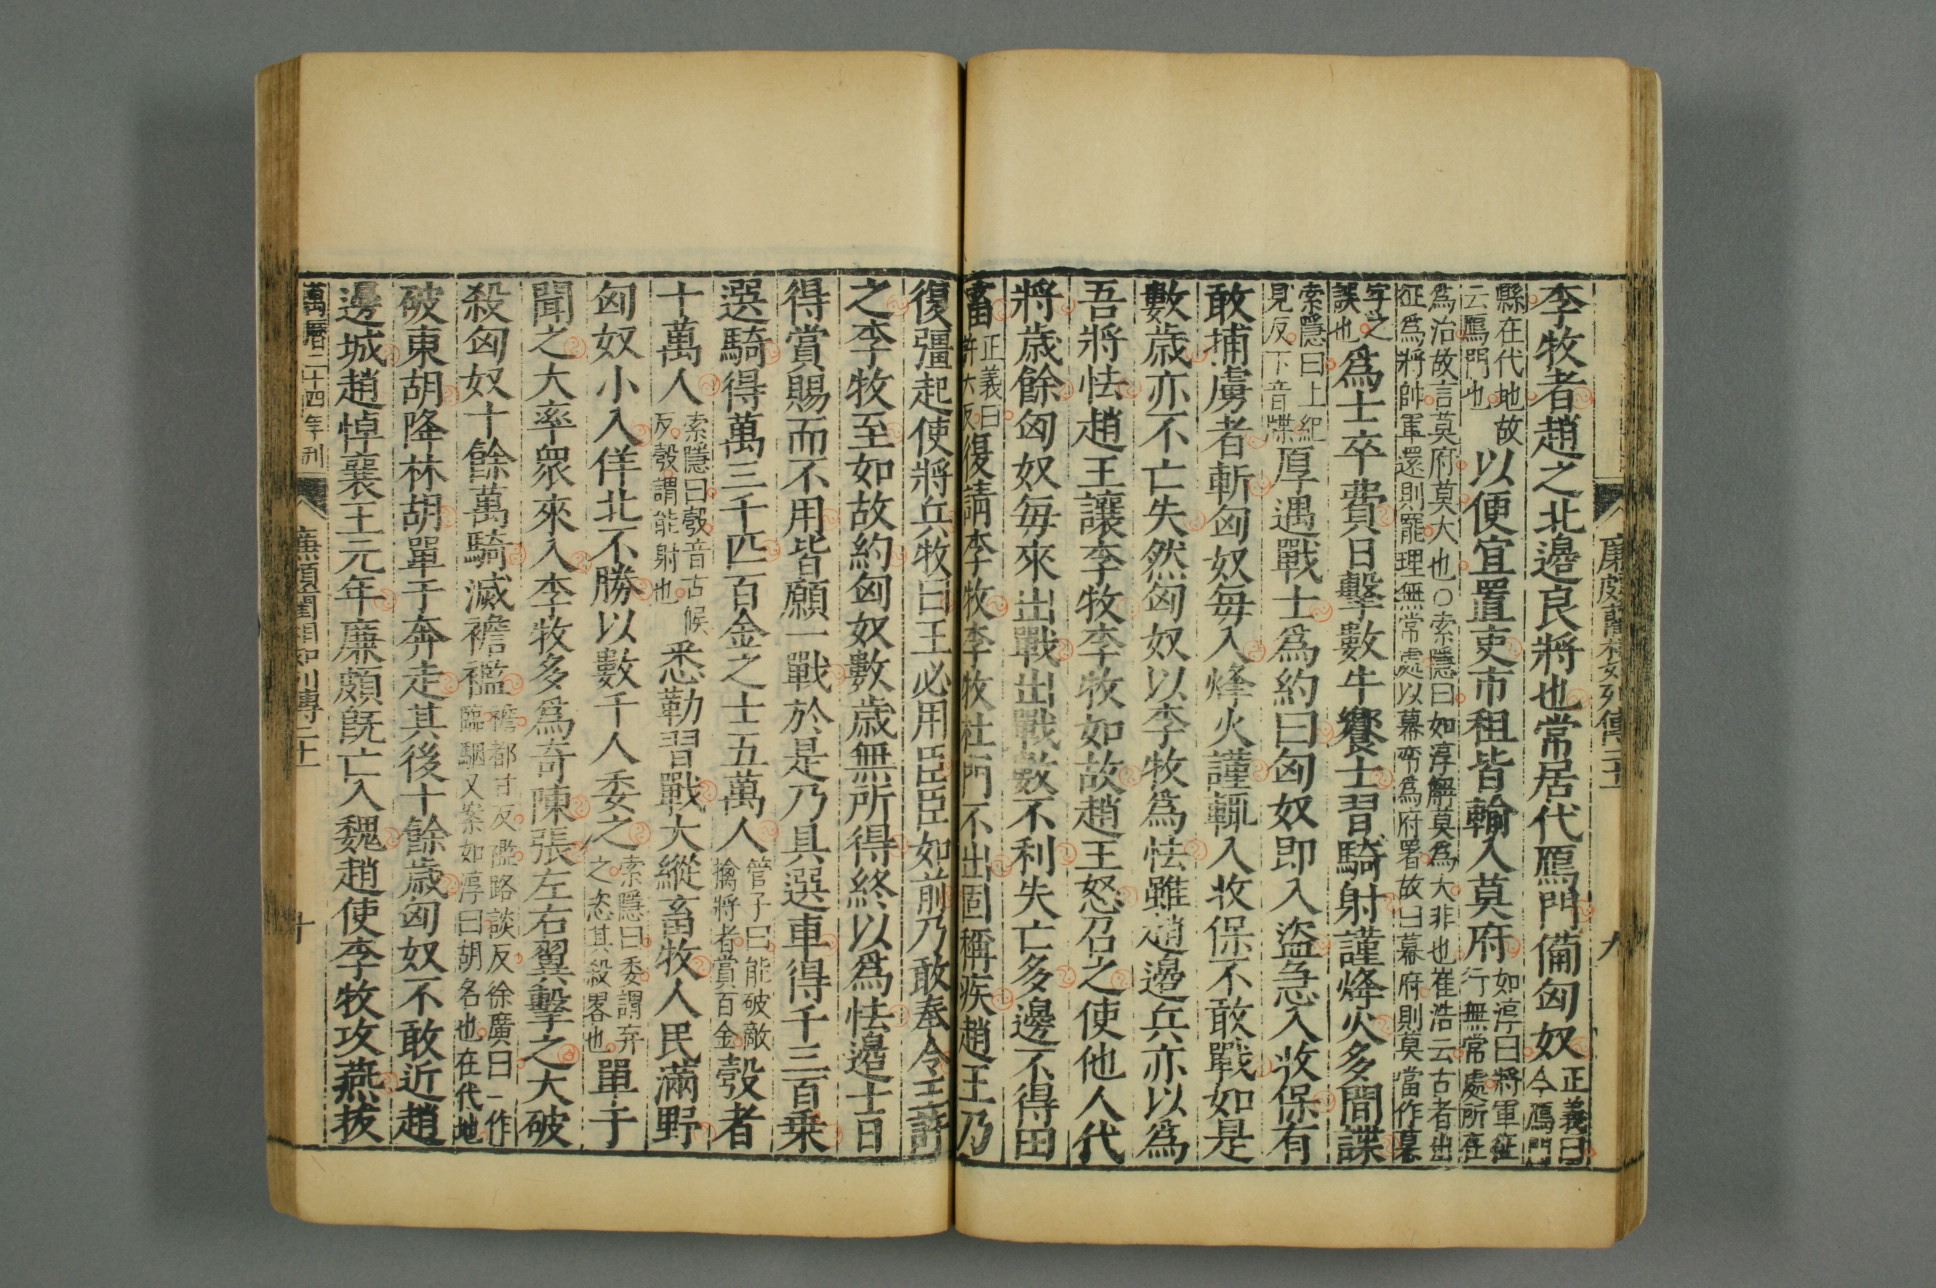 廉頗藺相如列傳二十一
九
李牧者趙之北邊良將也常居代鴈門備匈奴正義曰今鴈門
縣在代地故云鴈門也以便宜置吏市租皆輸入莫府如淳曰將軍征行無常處所在
爲治故言莫府莫大也○索隱曰如淳解莫爲大非也崔浩云古者出
征爲將帥軍還則罷理無常處以幕帟爲府署故曰幕府則莫當作幕
字之誤也爲士卒費日擊數牛饗士習騎射謹烽火多間諜
索隱曰上紀見反下音牒厚遇戰士爲約曰匈奴即入盜急入收保有
敢捕虜者斬匈奴每入烽火謹輒入收保不敢戰如是
數歲亦不亡失然匈奴以李牧爲怯雖趙邊兵亦以爲
吾將怯趙王讓李牧李牧如故趙王怒召之使他人代
將歲餘匈奴每來出戰出戰數不利失亡多邊不得田
畜正義曰許六反復請李牧李牧杜門不出固稱疾趙王乃
復彊起使將兵牧曰王必用臣臣如前乃敢奉令王許
之李牧至如故約匈奴數歲無所得終以爲怯邊士日
得賞賜而不用皆願一戰於是乃具選車得千三百乘
選騎得萬三千匹百金之士五萬人管子曰能破敵擒將者賞百金彀者
十萬人索隱曰彀音古候反彀謂能射也悉勒習戰大縱畜牧人民滿野
匈奴小入佯北不勝以數千人委之索隱曰委謂弃之恣其殺畧也單于
聞之大率衆來入李牧多爲奇陳張左右翼擊之大破
殺匈奴十餘萬騎滅襜襤襜都甘反襤路談反徐廣曰一作臨駰又案如淳曰胡名也在代地
破東胡降林胡單于奔走其後十餘歲匈奴不敢近趙
邊城趙悼襄王元年廉頗既亡入魏趙使李牧攻燕拔
萬曆二十四年刊
廉頗藺相如列傳二十一
十